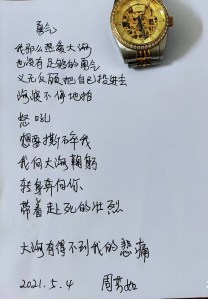 勇气
我那么热爱大海
也没有足够的勇气
义无反顾把自己投进去
海浪不停地拍
怒吼
想要撕碎我
我向大海鞠躬
转身奔向你
带着赴死的壮烈
大海有得不到我的悲痛
2021.5.4 周芳如